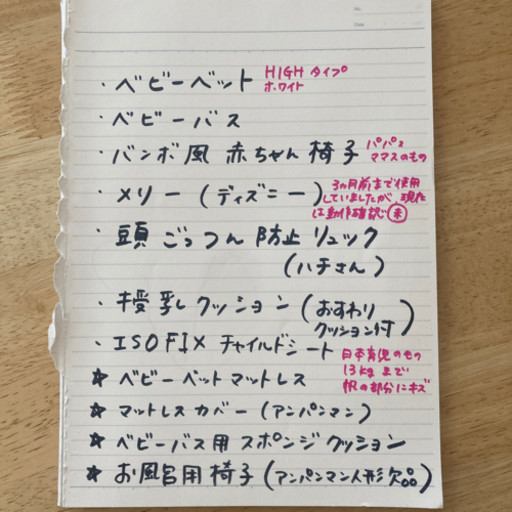 No.
Date
・ベビーベット HIGH タイプ
ホワイト
・ベビーバス
・バンボ風 赤ちゃん 椅子 パパス
ママスのもの
・メリー(ディズニー) 3ヵ月前まで使用
していましたが、現在
は動作確認 未
・頭ごっつん防止リュック
(ハチさん)
・授乳クッション(おすわり
クッション付)
・ISOFIX チャイルドシート 日本育児のもの
13kgまで
★ ベビーベットマットレス 枕の部分にキズ
★ マットレスカバー(アンパンマン)
★ ベビーバス用スポンジクッション
★ お風呂用椅子(アンパンマン人形欠品)